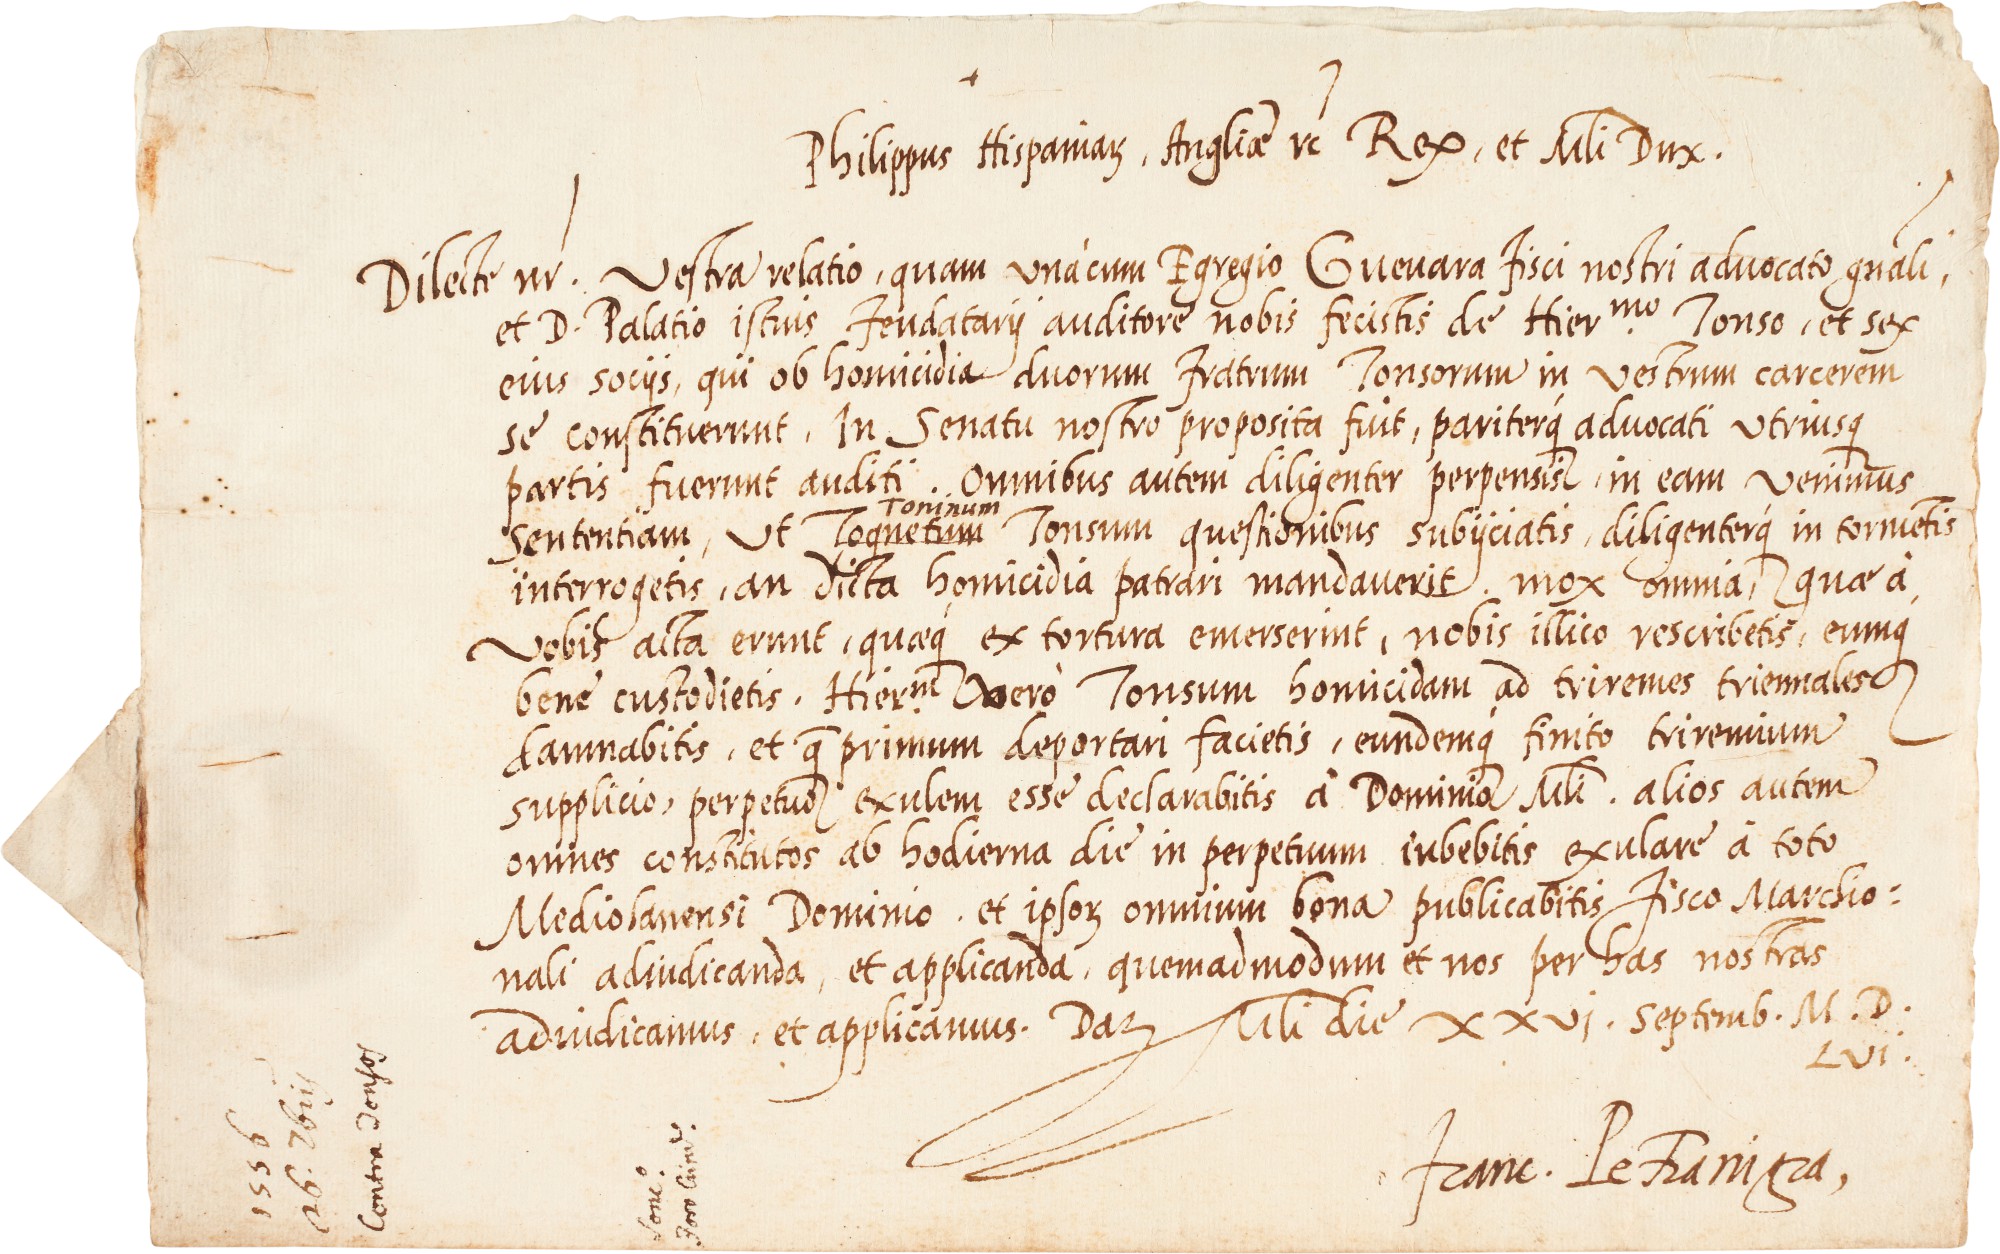 Philippus Hispaniaꝝ, Angliæ ꝛc Rex, et Mli Dux.
Dilecte nr̄. Vestra relatio, quam unàcum Egregio Guevara Fisci nostri advocato gn̄ali,
et D. Palatio istius Feudatarij auditore nobis fecistis de Hier.mo Tonso, et sex
eius socijs, qui ob homicidia duorum Fratrum Tonsorum in vestrum carcerem
se constituerunt, In Senatu nostro proposita fuit, pariterq́ advocati utriusq́
partis fuerunt auditi. Omnibus autem diligenter perpensis, in eam venimus
Toninum
sententiam, ut Tognetum Tonsum questionibus subijciatis, diligenterq́ in tormētis
interrogetis, an dicta homicidia patrari mandaverit. mox omnia, quæ à
vobis acta erunt, quæq́ ex tortura emerserint, nobis illico rescribetis, eumq́
bene custodietis. Hier.m verò Tonsum homicidam ad triremes triennales
damnabitis, et q̄ primum deportari facietis, eundemq́ finito triremium
supplicio, perpetuo exulem esse declarabitis à Dominio Mli. alios autem
omnes constitutos ab hodierna die in perpetuum iubebitis exulare à toto
Mediolanensi Dominio. et ipsoꝝ omnium bona publicabitis Fisco Marchio=
nali adiudicanda, et applicanda, quemadmodum et nos per has nostras
adiudicamus, et applicamus. Datꝝ Mli die XXVI. Septemb. M.D.
LVI.
Franc.
1556
26. 7bris
Contra Tonsos